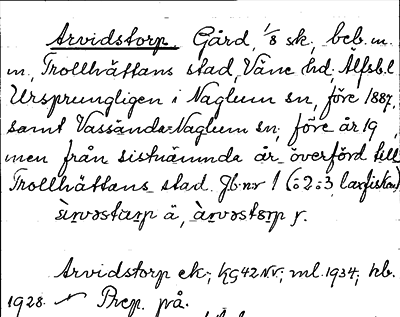 Arvidstorp. Gård, 1/8 sk., beb. m.
m., Trollhättans stad, Väne hd, Älfsb.l
Ursprungligen i Naglum sn, före 1887,
samt Vassända-Naglum sn, före år 19 ,
men från sistnämnda år överförd till
Trollhättans stad. Jb. nr 1 (:2:3, laxfiske)
ä, y.
Arvidstorp ek; KG42NV; ml. 1934; hb.
1928. Prep. på.